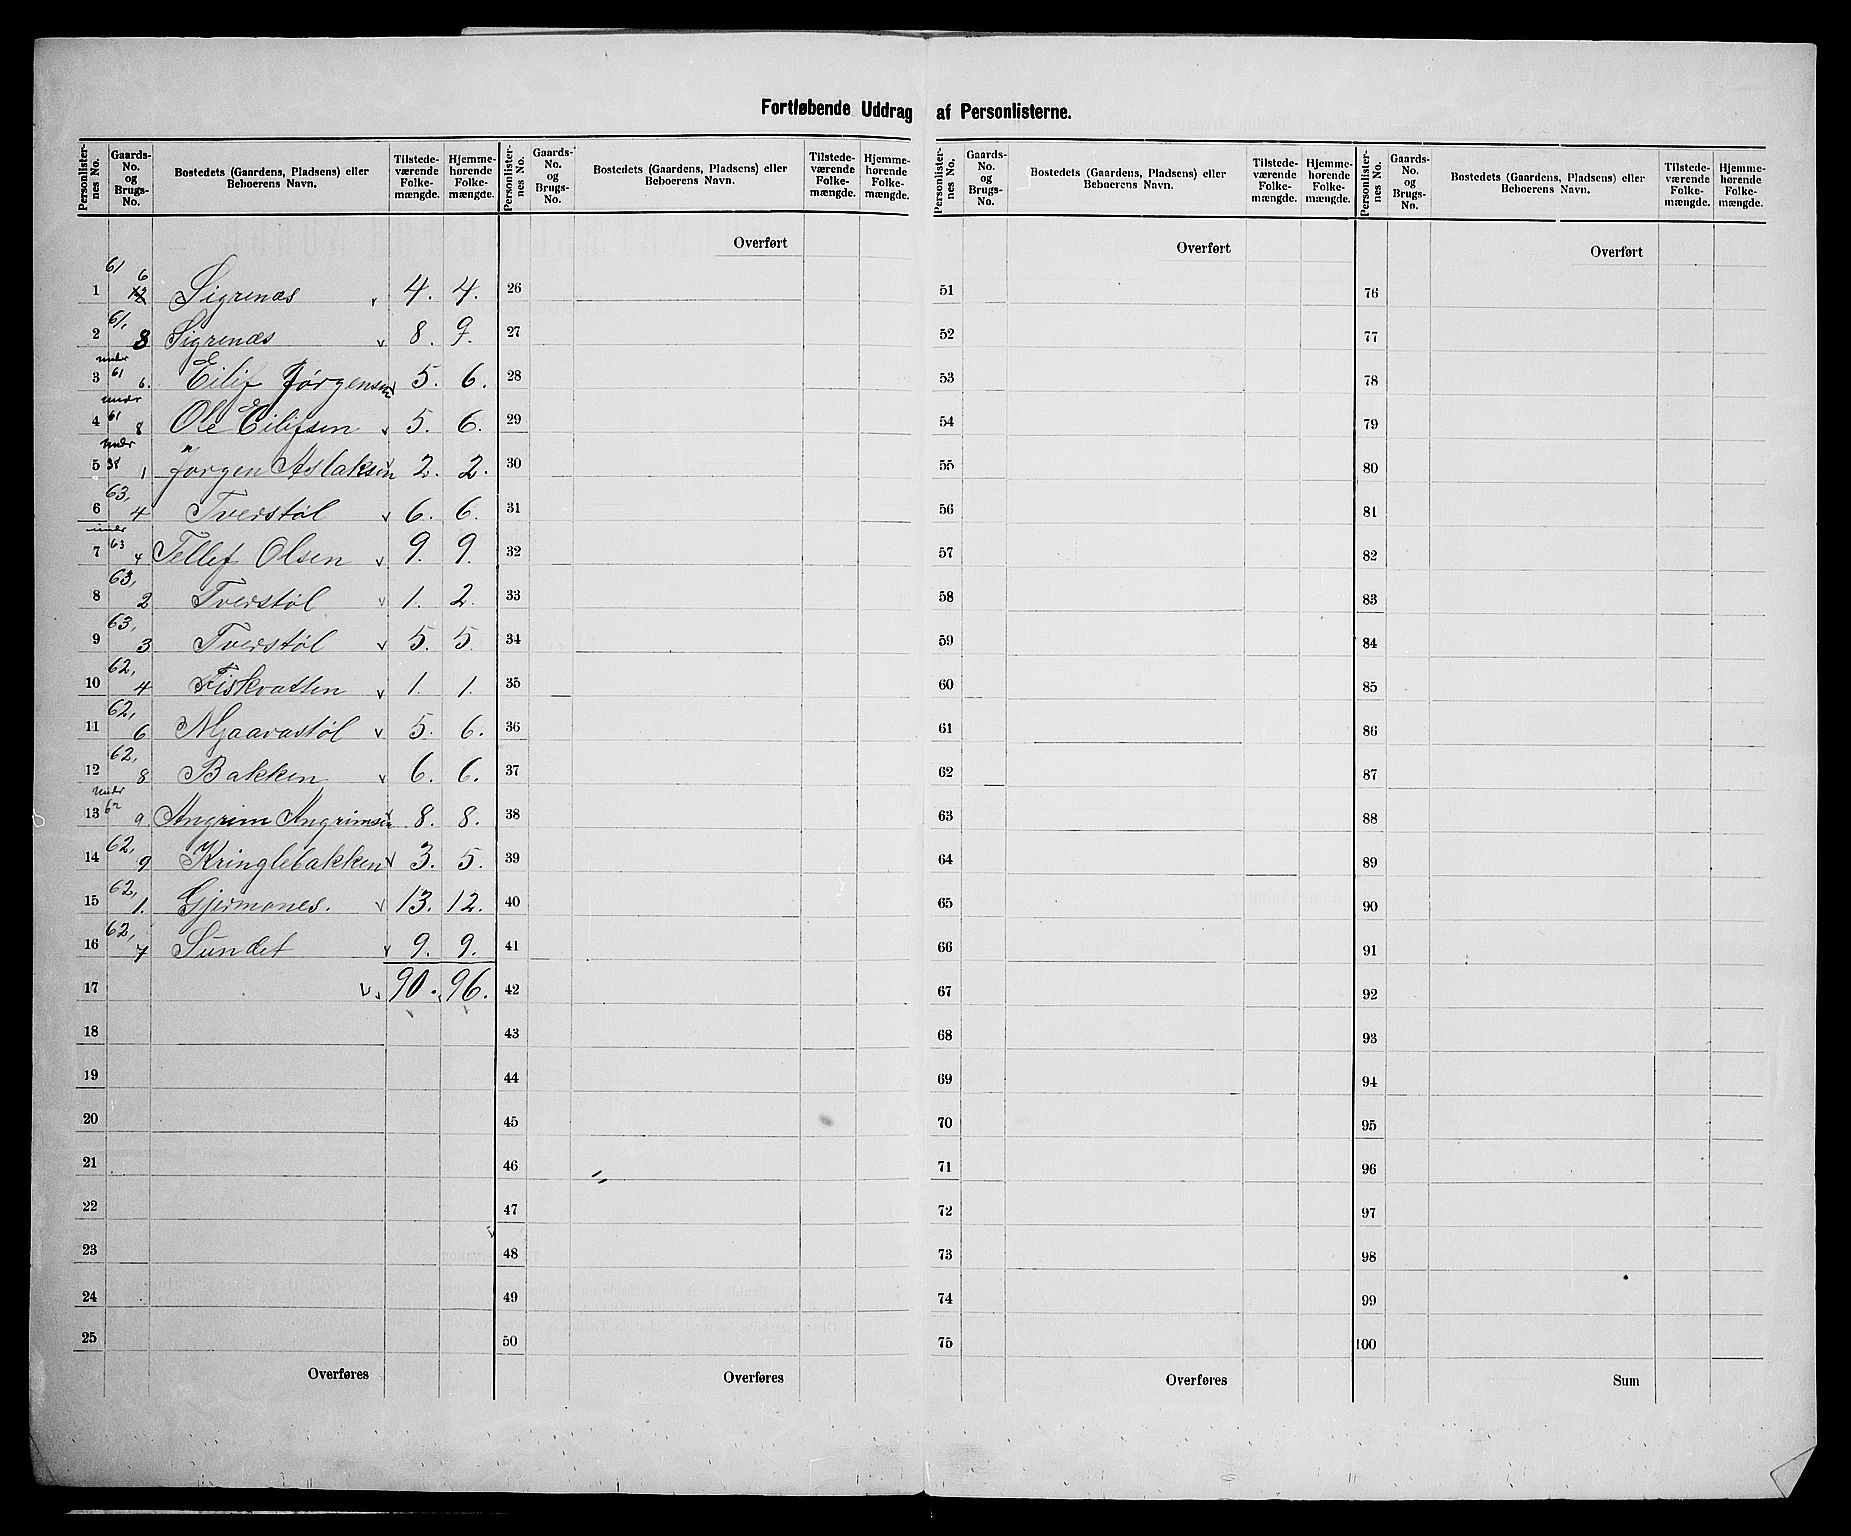 Fortløbende Uddrag af Personlisterne.
Personlister-nes No. | Gaards-No. og Brugs-No. | Bostedets (Gaardens, Pladsens) eller Beboerens Navn. | Tilstede-værende Folke-mængde. | Hjemme-hørende Folke-mængde.
1 | 61 6 | Sigrenæs | 4. | 4.
2 | 61, 8 | Sigrenæs | 8. | 9.
3 | under 61 6. | Eilif Jørgensen | 5. | 6.
4 | under 61 8 | Ole Eilifsen | 5. | 6.
5 | under 38 1 | Jørgen Aslaksen | 2. | 2.
6 | 63, 4 | Tverstøl | 6. | 6.
7 | under 63 4 | Tellef Olsen | 9. | 9.
8 | 63, 2 | Tverstøl | 1. | 2.
9 | 63, 3 | Tverstøl | 5. | 5.
10 | 62, 4 | Fiskvatten | 1. | 1.
11 | 62, 6 | Mjaavastøl | 5. | 6.
12 | 62, 8 | Bakken | 6. | 6.
13 | under 62 9. | Angrim Angrimsen | 8. | 8.
14 | 62, 9 | Kringlebakken | 3. | 5.
15 | 62, 1. | Gjermones. | 13. | 12.
16 | 62, 7 | Sundet | 9. | 9.
17 | 90. | 96.
18
19
20
21
22
23
24
25
Overføres
Personlister-nes No. | Gaards-No. og Brugs-No. | Bostedets (Gaardens, Pladsens) eller Beboerens Navn. | Tilstede-værende Folke-mængde. | Hjemme-hørende Folke-mængde.
Overført
26
27
28
29
30
31
32
33
34
35
36
37
38
39
40
41
42
43
44
45
46
47
48
49
50
Overføres
Personlister-nes No. | Gaards-No. og Brugs-No. | Bostedets (Gaardens, Pladsens) eller Beboerens Navn. | Tilstede-værende Folke-mængde. | Hjemme-hørende Folke-mængde.
Overført
51
52
53
54
55
56
57
58
59
60
61
62
63
64
65
66
67
68
69
70
71
72
73
74
75
Overføres
Personlister-nes No. | Gaards-No. og Brugs-No. | Bostedets (Gaardens, Pladsens) eller Beboerens Navn. | Tilstede-værende Folke-mængde. | Hjemme-hørende Folke-mængde.
Overført
76
77
78
79
80
81
82
83
84
85
86
87
88
89
90
91
92
93
94
95
96
97
98
99
100
Sum